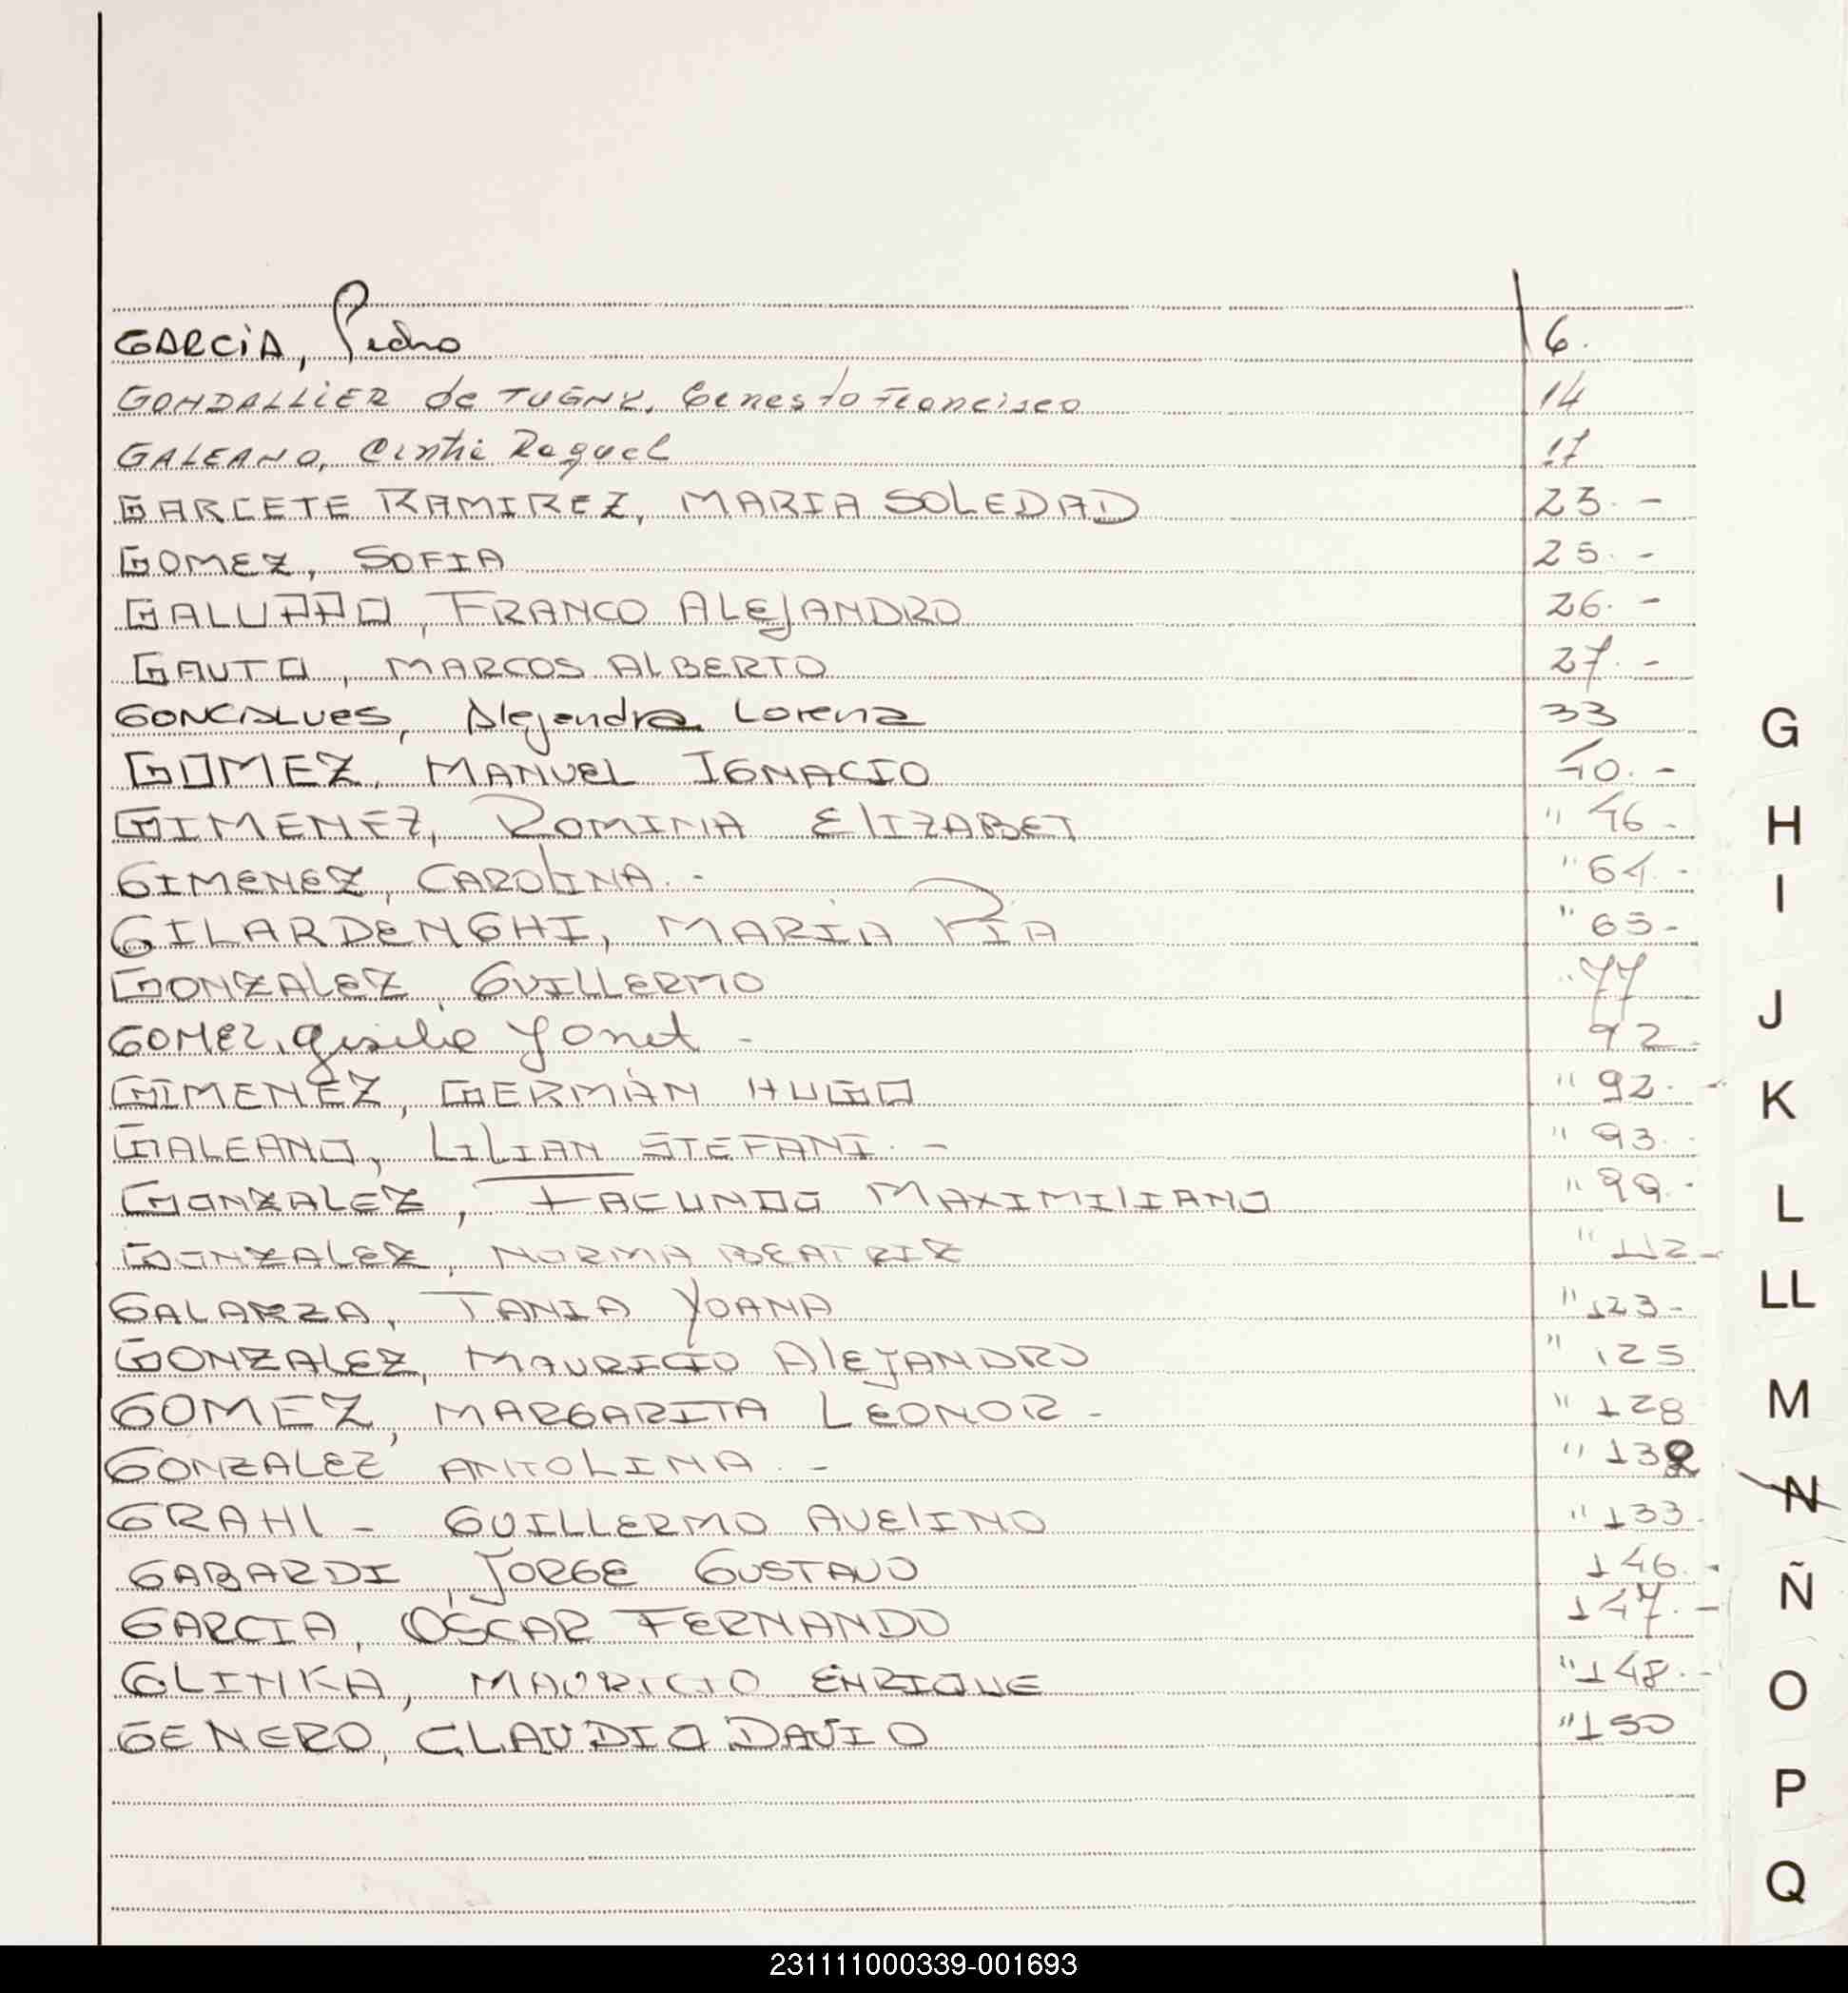 GARCIA, Pedro 6.
GONDALLIER de TUGNY, Ernesto Francisco 14
GALEANO, Cinthi Raquel 17
GARCETE RAMIREZ, MARIA SOLEDAD 23.-
GOMEZ, SOFIA 25.-
GALUPPO, FRANCO ALEJANDRO 26.-
GAUTO, MARCOS ALBERTO 27.-
GONCALVES, Alejandra Lorena 33
GOMEZ, MANUEL IGNACIO 40.-
GIMENEZ, ROMINA ELIZABET " 46-
GIMENEZ, CAROLINA.- " 64.-
GILARDENGHI, MARÍA PIA " 65-
GONZALEZ, GUILLERMO " 77
GOMEZ, Gisela Yanet - 92-
GIMENEZ, GERMÁN HUGO " 92.-
GALEANO, LILIAN STEFANI.- " 93.-
GONZALEZ, FACUNDO MAXIMILIANO " 99.-
GONZALEZ, NORMA BEATRIZ " 112-
GALARZA, TANIA YOANA " 123-
GONZALEZ, MAURICIO ALEJANDRO " 125
GOMEZ, MARGARITA LEONOR- " 128
GONZALEZ ANTOLINA.- " 132
GRAHL - GUILLERMO AVELINO " 133.
GABARDI, JORGE GUSTAVO 146.-
GARCIA, OSCAR FERNANDO 147.-
GLINKA, MAURICIO ENRIQUE " 148.-
GENERO, CLAUDIO DAVID " 150
G
H
I
J
K
L
LL
M
N
Ñ
O
P
Q
231111000339-001693